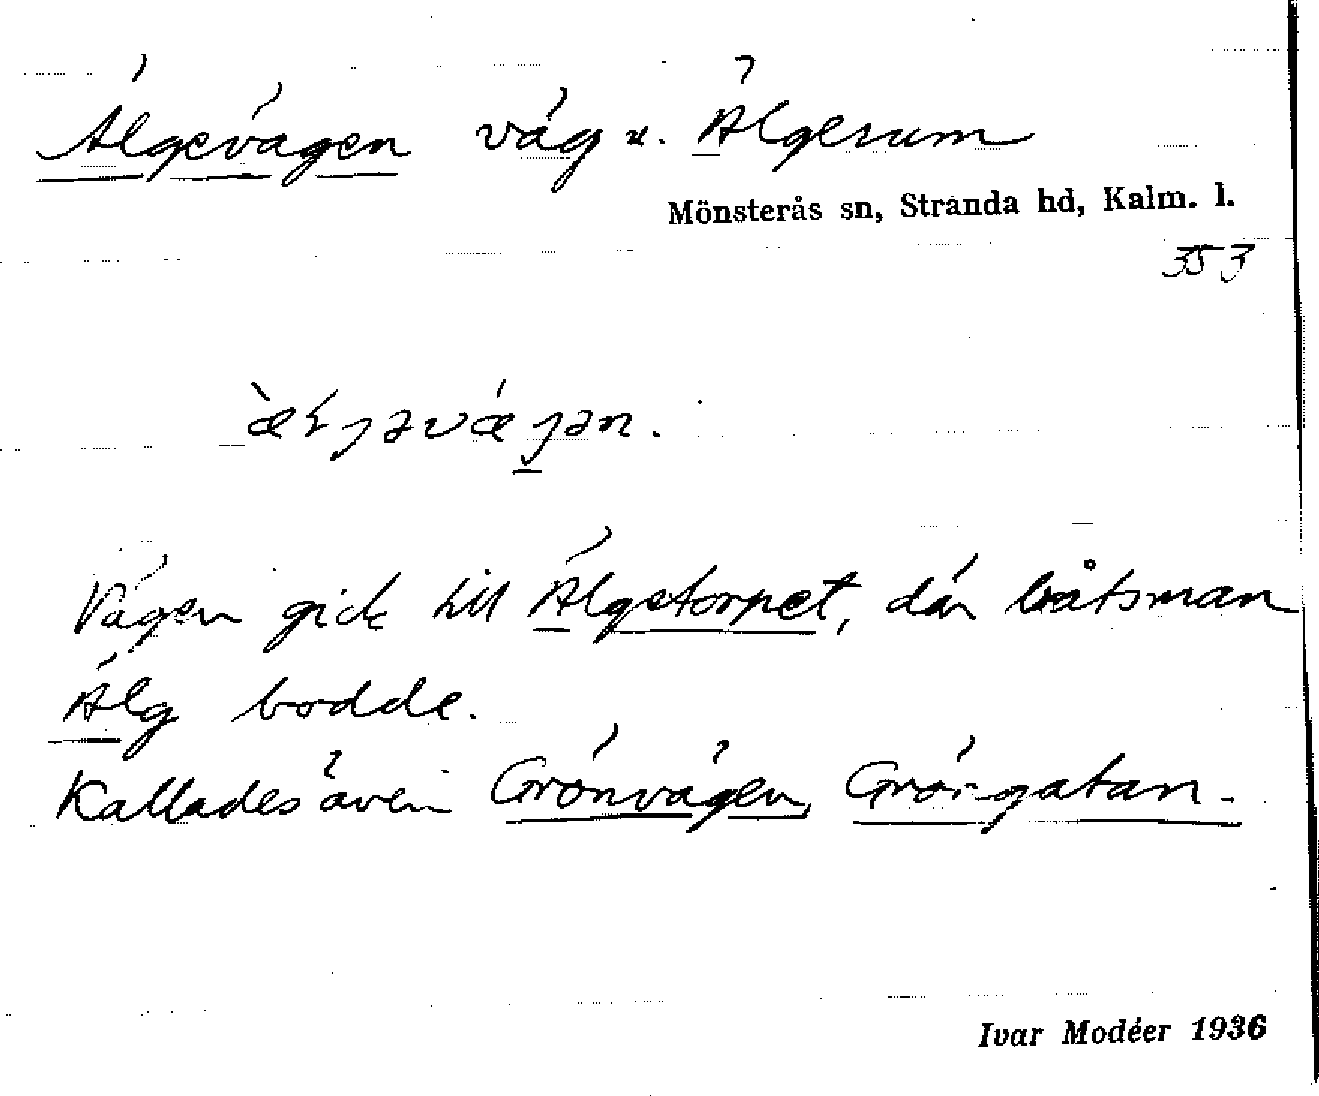 Älgevägen väg u. Älgerum
Mönsterås sn, Stranda hd, Kalm. l.
353
Vägen gick till Älgetorpet, där båtsman
Älg bodde.
Kallades även Grönvägen, Gröngatan.
Ivar Modéer 1936